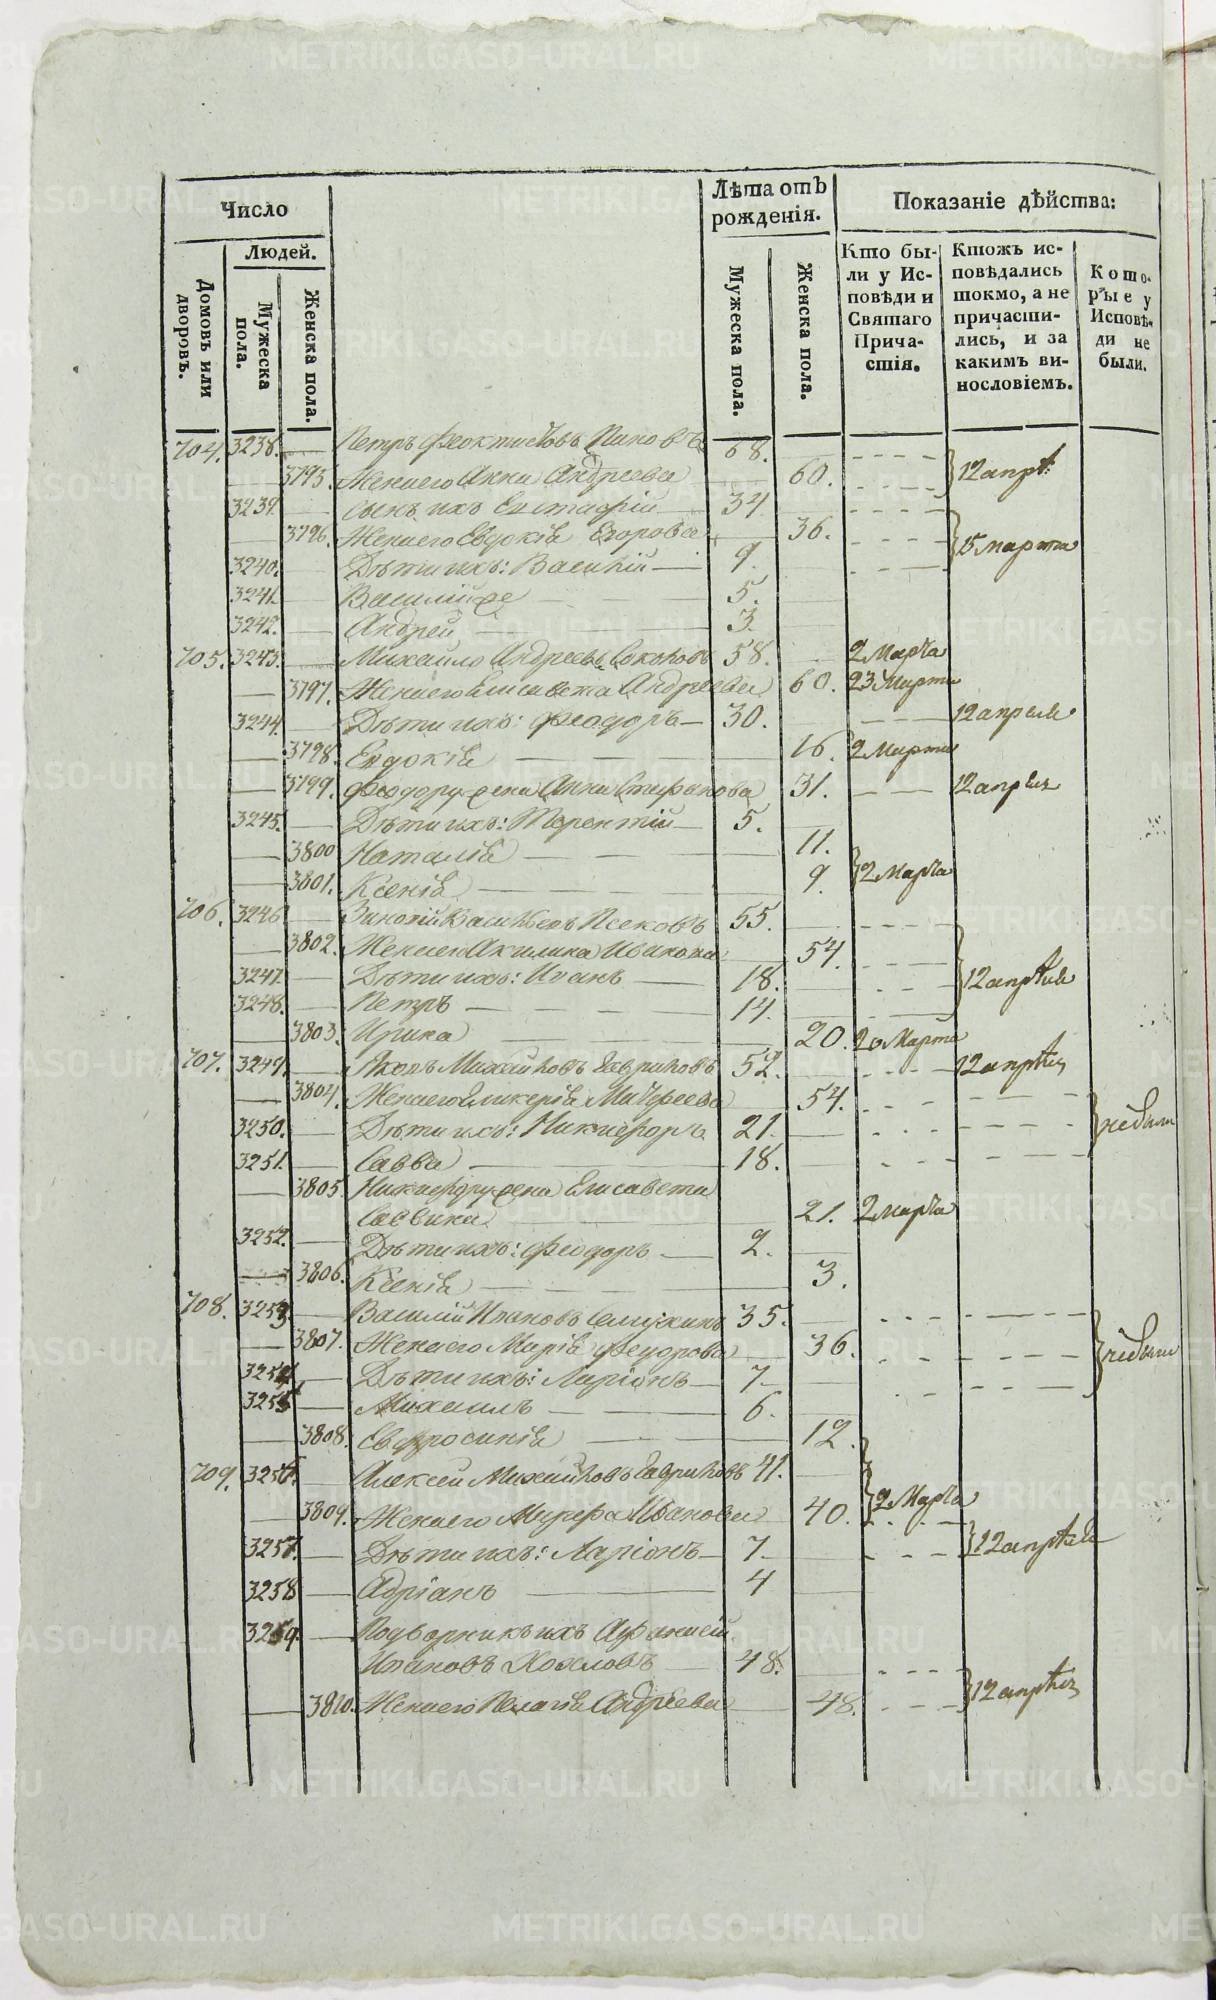 Число
Людей.
Домовъ или дворовъ.
Мужеска пола.
Женска пола.
Лѣта отъ рожденія.
Мужеска пола.
Женска пола.
Показаніе дѣйства:
Кто были у Исповѣди и Святаго Причастія.
Ктожъ исповѣдались токмо, а не причастились, и за какимъ винословіемъ.
Которые у Исповѣди не были.
704. 3238. Петръ Феоктистовъ Пановъ 68. 12 апрѣ
3795. Жена его Анна Андреева 60.
3239. сынъ ихъ Евстафій 34
3796. Жена его Евдокія Егорова 36. 15 марта
3240. Дѣти ихъ: Василій 9.
3241. Василій же 5.
3242. Андрей 3.
705. 3243. Михайло Андреевъ Соколовъ 58. 2 Марта
3797. Жена его Елисавета Андреева 60. 23 Марта
3244. Дѣти ихъ: Феодоръ 30. 12 апреля
3798. Евдокія 16. 2 Марта
3799. Феодору жена Анна Стефанова 31. 12 апрѣля
3245. Дѣти ихъ: Терентій 5.
3800 Наталія 11.
3801. Ксенія 9. 2 Марта
706. 3246 Зиновій Васильевъ 55.
3802. Жена его Акилина Иванова 54.
3247. Дѣти ихъ: Иванъ 18. 12 апрѣля
3248. Петръ 14.
3803. Ирина 20. 20 Марта
707. 3249. Яковъ Михайловъ Гавриловъ 52. 12 апрѣля
3804. Жена его Гликерія Матфеева 54.
3250. Дѣти ихъ: Никифоръ 21. небыли
3251. Савва 18.
3805. Никифору жена Елисавета
Саввина 21. 2 Марта
3252. Дѣти ихъ: Феодоръ 2.
3806. Ксенія 3.
708. 3253 Василій Ивановъ 35.
3807. Жена его Марія Феодорова 36. небыли
3254 Дѣти ихъ: Ларіонъ 7
3255 Михаилъ 6.
3808. Евфросинія 12.
709. 3256. Алексей Михайловъ Гавриловъ 41.
3809. Жена его Марфа Иванова 40. 2 Марта
3257. Дѣти ихъ: Ларіонъ 7 12 апрѣля
3258 Адріанъ 4
3259. Подворникъ ихъ Афанасій
Ивановъ Хохловъ 48.
3810. Жена его Пелагія Андреева 48. 12 апрѣля
METRIKI.GASO-URAL.RU